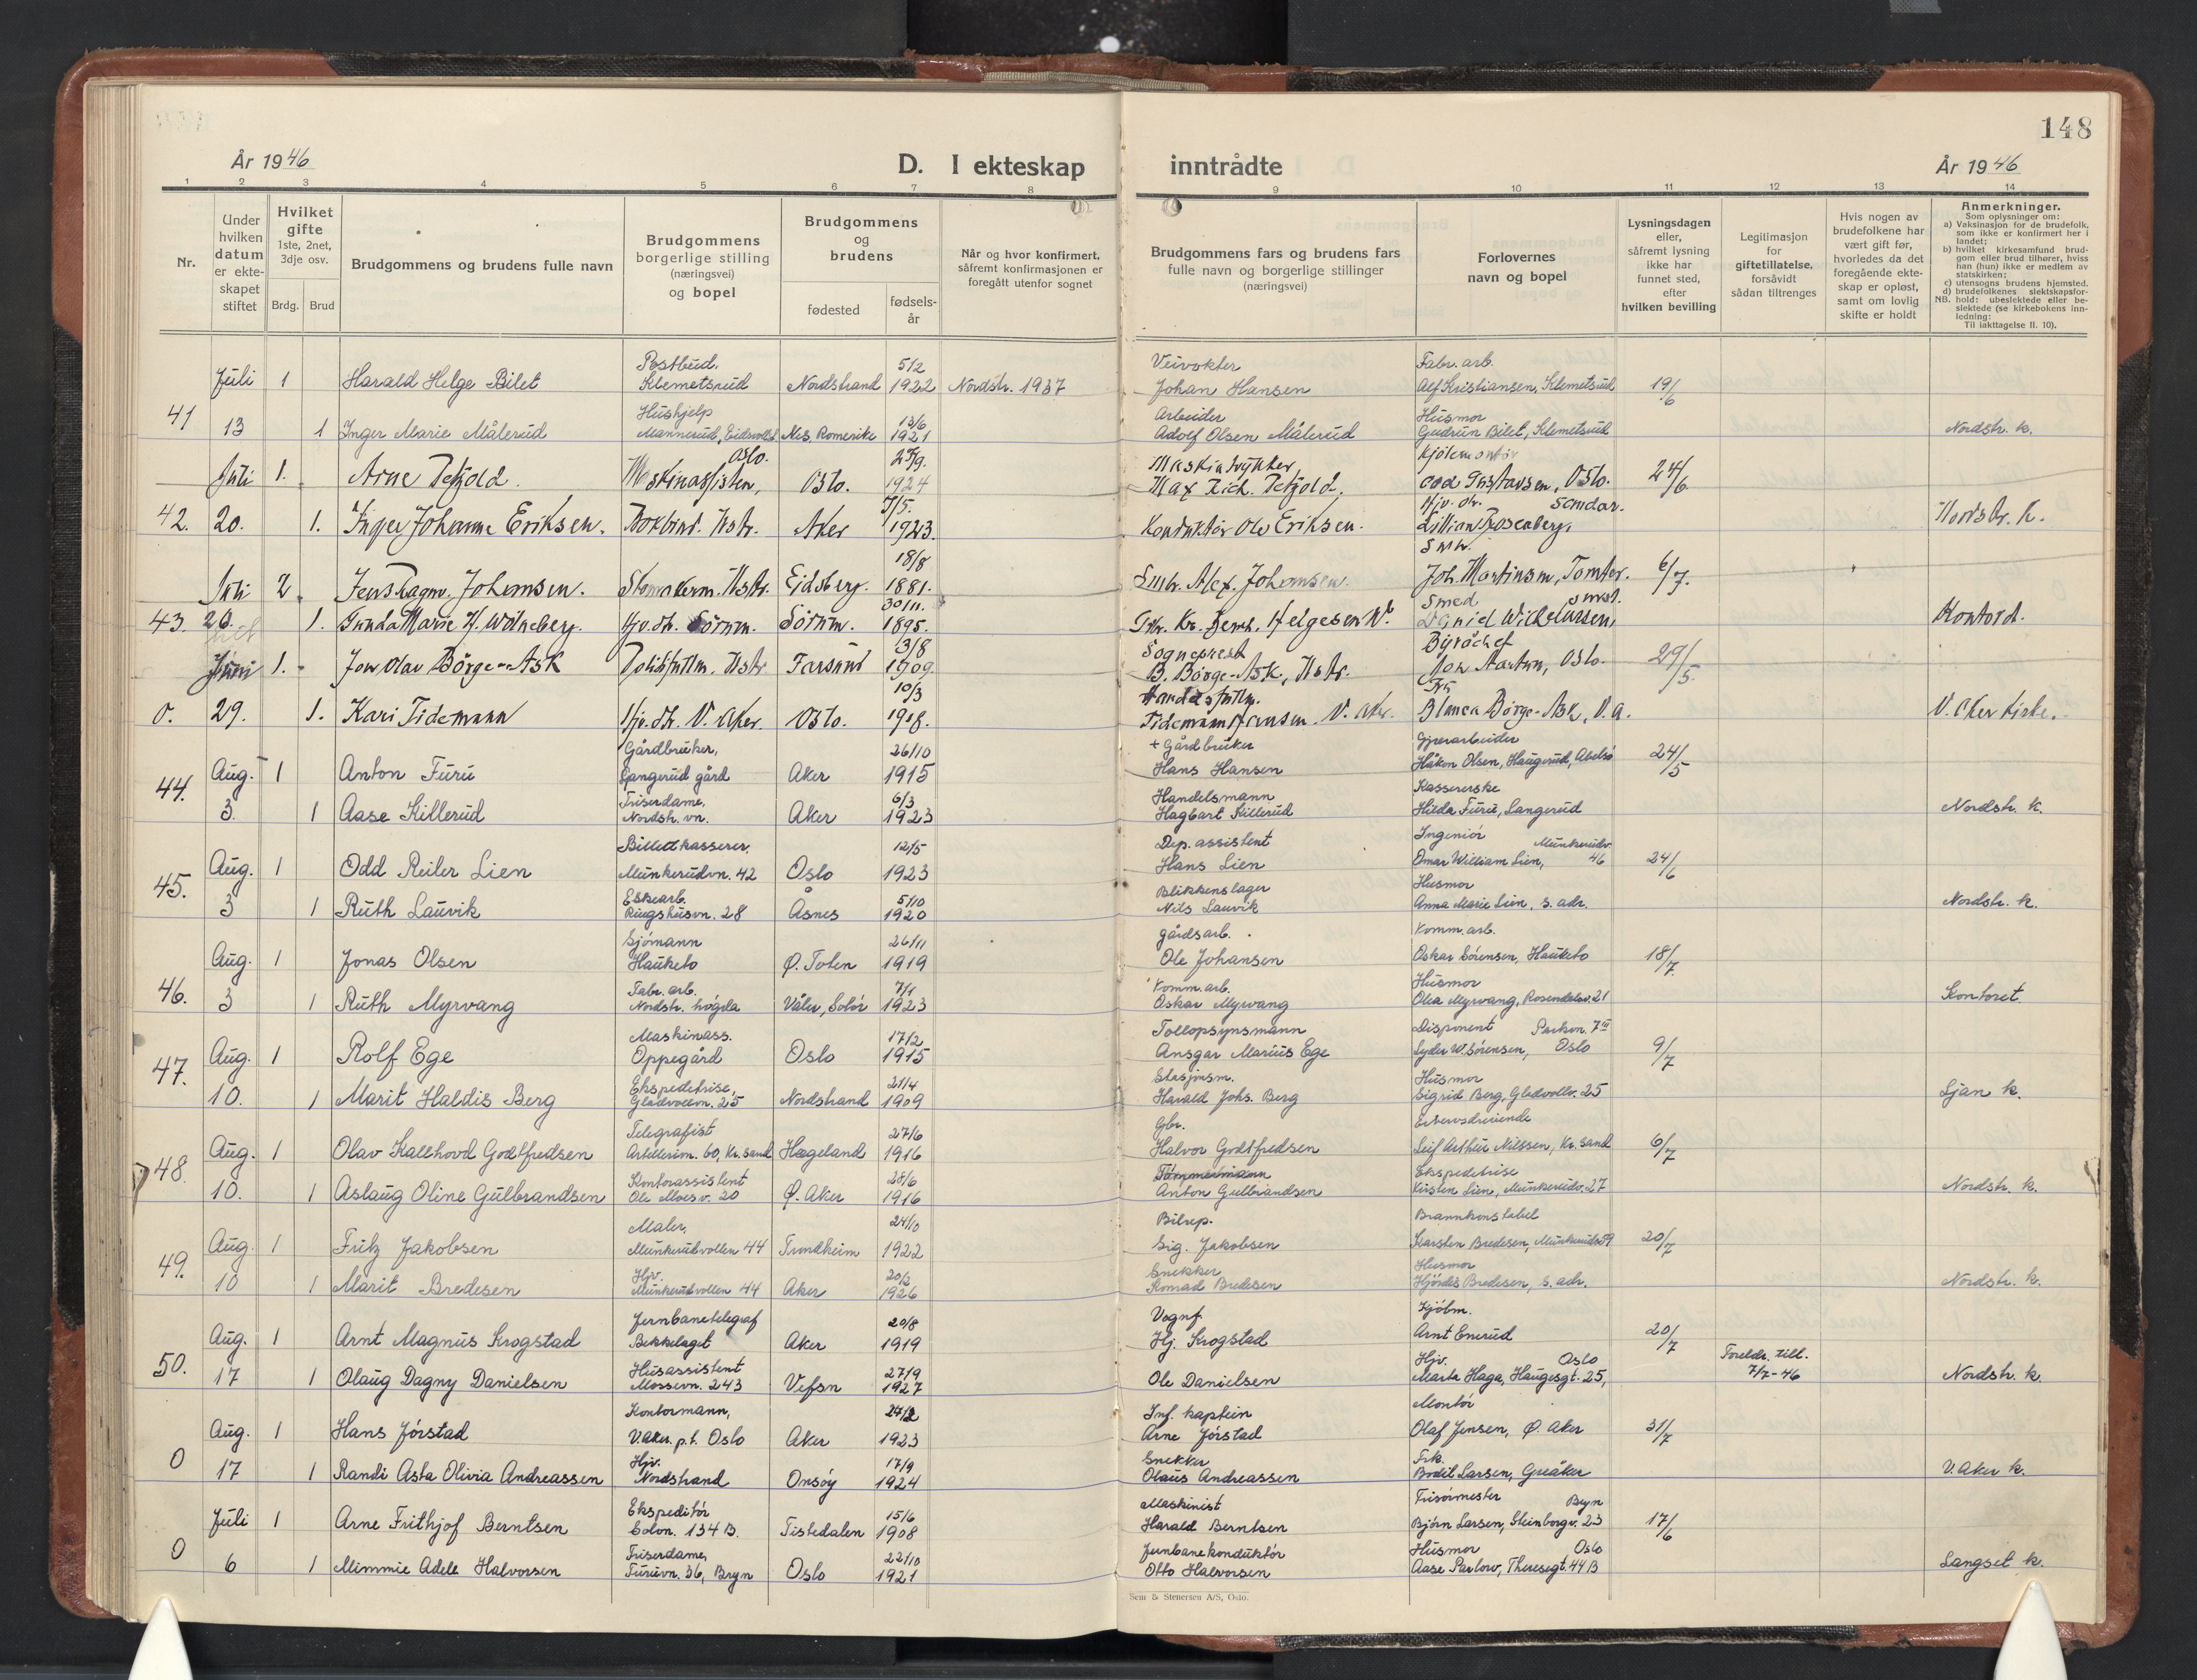 148
År 1946
D. I ekteskap inntrådte
År 1946
1 2 3 4 5 6 7 8 9 10 11 12 13 14
Nr.
Under hvilken datum er ekteskapet stiftet
Hvilket gifte 1ste, 2net, 3dje osv.
Brdg. Brud
Brudgommens og brudens fulle navn
Brudgommens borgerlige stilling (næringsvei) og bopel
Brudgommens og brudens
fødested
fødselsår
Når og hvor konfirmert, såfremt konfirmasjonen er foregått utenfor sognet
Brudgommens fars og brudens fars fulle navn og borgerlige stillinger (næringsvei)
Forlovernes navn og bopel
Lysningsdagen eller, såfremt lysning ikke har funnet sted, efter hvilken bevilling
Legitimasjon for giftetillatelse, forsåvidt sådan tiltrenges
Hvis nogen av brudefolkene har vært gift før, hvorledes da det foregående ekteskap er opløst, samt om lovlig skifte er holdt
Anmerkninger.
Som oplysninger om:
a) Vaksinasjon for de brudefolk, som ikke er konfirmert her i landet;
b) hvilket kirkesamfund brudgom eller brud tilhører, hviss han (hun) ikke er medlem av statskirken;
c) utensogns brudens hjemsted.
d) brudefolkenes slektskapsforhold: ubeslektede eller beslektede (se kirkebokens innledning:
NB.
Til iakttagelse II. 10).
Postbud. 5/2 Veivokter Fabr. arb.
Juli 1 Harald Helge Bilet Klemetsrud Nordstrand 1922 Nordstr. 1937 Johan Hansen Alf Kristiansen, Klemetsrud 19/6
41 Hushjelp 13/6 Arbeider Husmor
13 1 Inger Marie Målerud Mannerud, Eidsvoll Nes, Romerike 1921 Adolf Olsen Målerud Gudrun Bilet, Klemetsrud Nordstr. k.
Oslo. 29/9. Maskintrykker
Juli 1. Arne Petzold. Maskinassisten, Oslo. 1924 Max Rich. Petzold. Odd Gustavsen, Oslo. 24/6
7/5. Hjv. dtr.
42. 20. 1. Inger Johanne Eriksen. Bokbind. Nstr. Aker 1923. Konduktør Ole Eriksen. Lillian Rosenberg, Nordstr. k.
18/8 Smbr.
Juli 2. Jens Ragnv. Johansen. Skomakerm. Nstr. Eidsberg. 1881. Smbr. Alex. Johansen. Joh. Martinsen, Tomter. 6/7.
30/11. Smed Smst.
43. 26. 1. Gunda Marie H. Wölneberg. Hjv. dtr. Sörum. Sörum. 1895. Kontord.
3/8 Sogneprest Byråchef
Juni 1. Jon Olav Börge-Ask Politifullm. Nstr. Farsund 1909. B. Börge-Ask, Nstr. Jon Aartun, Oslo. 29/5.
10/3 Fru
0. 29. 1. Kari Tidemann Hjv. dtr. V. Aker. Oslo. 1918. Tidemann Hansen V. Aker. Blanca Börge-Ask, V. a. V. Aker kirke.
Gårdbruker, 26/10 + Gårdbruker Gjerarbeider
Aug. 1 Anton Furu Langerud gård Aker 1915 Hans Hansen Håkon Olsen, Haugerud, Abelsø 24/5
44. Friserdame, 6/3 Handelsmann Kassererske
3. 1 Aase Killerud Nordstr. vn. Aker 1923 Hagbart Killerud Hilda Furu, Langerud Nordstr. k.
Billedkasserer. 12/5 Dep. assistent Ingeniør Munkerudv.
Aug. 1 Odd Reiler Lien Munkerudvn. 42 Oslo 1923 Hans Lien Omar William Lien, 46 24/6
45. Eskearb. 5/10 Blikkenslager Husmor
3 1 Ruth Lauvik Ringshusvn. 28 Åsnes 1920 Nils Lauvik Anna Marie Lien, s. adr. Nordstr. k.
Sjømann 26/11 gårdsarb. Komm. arb.
Aug. 1 Jonas Olsen Hauketo Ø. Toten 1919 Ole Johansen Oskar Sørensen, Hauketo 18/7
46. Fabr. arb. 7/1 Komm. arb. Husmor
3 1 Ruth Myrvang Nordstr. høgda Våler, Solør 1923 Oskar Myrvang Olea Myrvang, Rosendalsv. 21 Kontoret
Maskinass. 17/2 Tollopsynsmann Disponent Parkvn. 7 III
Aug. 1 Rolf Ege Oppegård Oslo 1915 Ansgar Marius Ege Lyder W. Sørensen, Oslo 9/7
47. Ekspeditrise, 21/4 Stasjonsm. Husmor
10. 1 Marit Haldis Berg Gladvollvn. 25 Nordstrand 1909 Harald Johs. Berg Sigrid Berg, Gladvollv. 25 Ljan k.
Telegrafist 27/6 Gbr. Ervervsdrivende
Aug. 1 Olav Kallhovd Godtfredsen Artillerim. 60, Kr. sand Hægeland 1916 Halvor Godtfredsen Leif Arthur Nilssen, Kr. sand 6/7
48. Kontorassistent 28/6 Tömmermann Ekspeditrise
10. 1 Aslaug Oline Gulbrandsen Ole Moes v. 20 Ø. Aker 1916 Anton Gulbrandsen Kirsten Lien, Munkerudv. 27 Nordstr. k.
Maler, 24/10 Bilrep. Brannkonstabel
Aug. 1 Fritz Jakobsen Munkerudvollen 44 Trondheim 1922 Sig. Jakobsen Karsten Bredesen, Munkerudv. 59 20/7
49. Hjv. 20/3 Snekker Husmor
10 1 Marit Bredesen Munkerudvollen 44 Aker 1926 Konrad Bredesen Hjördis Bredesen, s. adr. Nordstr. k.
Jernbanetelegraf 20/8 Vognf. Kjøbm.
Aug. 1 Arnt Magnus Krogstad Bekkelaget Aker 1919 Hj. Krogstad Arnt Enerud 20/7
50. Husassistent 27/9 Hjv. Oslo Foreldr. till.
17 1 Olaug Dagny Danielsen Mossevn. 243 Vefsn 1927 Ole Danielsen Marta Haga, Haugesgt. 25, 7/7-46 Nordstr. k.
Kontormann, 24/2 Inf. kaptein Montør
Aug. 1 Hans Jörstad V. Aker. p.t. Oslo Aker 1923 Arne Jörstad Olaf Jensen, Ø. Aker 31/7
0 Hjv. 17/9 Snekker Frk.
17 1 Randi Asta Olivia Andreassen Nordstrand Onsøy 1924 Olaus Andreassen Bodil Larsen, Greåker V. Aker k.
Ekspeditør 15/6 Maskinist Frisörmester Bryn
Juli 1 Arne Frithjof Berntsen Solvn. 134 B. Tistedalen 1908 Harald Berntsen Bjørn Larsen, Steinborgv. 23 17/6
0 Friserdame, 22/10 Jernbanekonduktör Husmor Oslo
6 1 Mimmie Adele Halvorsen Furuvn. 36, Bryn Oslo 1921 Otto Halvorsen Aase Parlow, Theresegt. 44 B Langset k.
Sem & Stenersen A/S, Oslo.